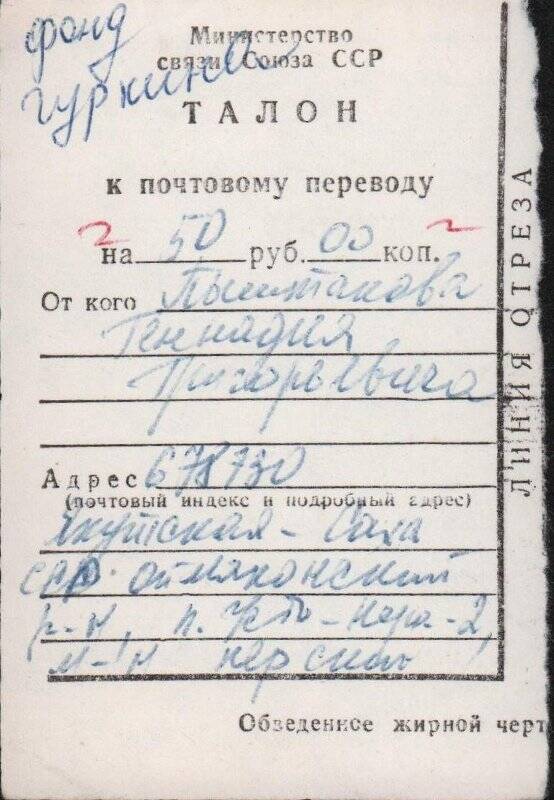 фонд
Гуркина
Министерство
связи Союза ССР
ТАЛОН
к почтовому переводу
на 50 руб. 00 коп.
От кого Пыштакова
Геннадия
Григорьевича
Адрес 678730
(почтовый индекс и подробный адрес)
Якутская-Саха
ССР. Оймяконский
р-н, п. Усть-Нера-2,
м-н Нерский
Обведенное жирной черт
ЛИНИЯ ОТРЕЗА